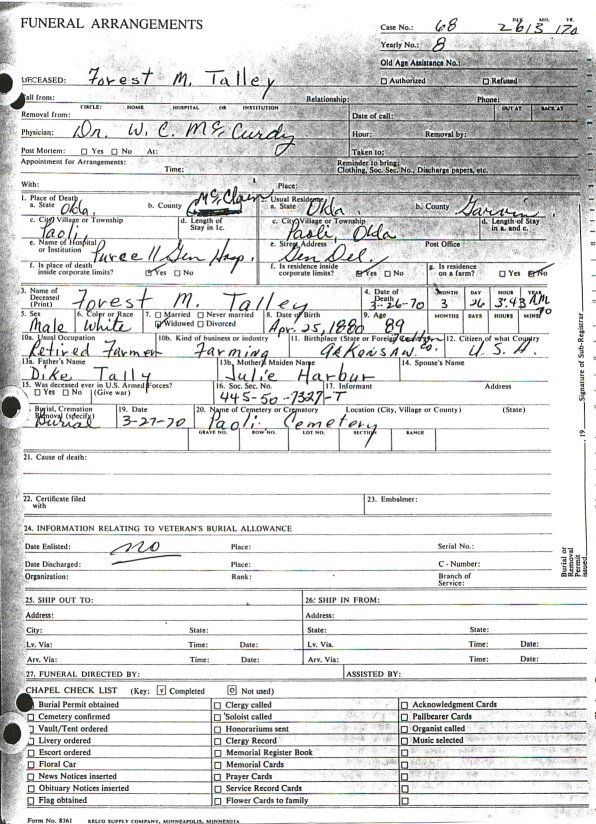 FUNERAL ARRANGEMENTS
Case No.: 68
DAY MO. YR.
26 3 70
Yearly No.: 8
Old Age Assistance No.:
DECEASED: Forest M. Talley
☐ Authorized ☐ Refused
Call from: Relationship: Phone:
CIRCLE: HOME HOSPITAL OR INSTITUTION OUT AT BACK AT
Removal from: Date of call:
Physician: Dr. W. C. McCurdy Hour: Removal by:
Post Mortem: ☐ Yes ☐ No At: Taken to:
Appointment for Arrangements: Reminder to bring:
Time: Clothing, Soc. Sec. No., Discharge papers, etc.
With: Place:
1. Place of Death Usual Residence
a. State Okla. b. County McClain a. State Okla b. County Garvin
c. City Village or Township Paoli d. Length of Stay in 1c. c. City Village or Township Paoli Okla d. Length of Stay in a. and c.
e. Name of Hospital or Institution Purcell Gen Hosp. e. Street Address Gen Del. Post Office
f. Is place of death inside corporate limits? ☑ Yes ☐ No f. Is residence inside corporate limits? ☑ Yes ☐ No g. Is residence on a farm? ☐ Yes ☑ No
3. Name of Deceased (Print) Forest M. Talley 4. Date of Death 3-26-70 MONTH 3 DAY 26 HOUR 3:43 AM YEAR 70
5. Sex Male 6. Color or Race White 7. ☐ Married ☐ Never married ☑ Widowed ☐ Divorced 8. Date of Birth Apr. 25, 1880 9. Age 89 MONTHS DAYS HOURS MINS.
10a. Usual Occupation Retired Farmer 10b. Kind of business or industry Farming 11. Birthplace (State or Foreign Co. Arkansaw 12. Citizen of what Country U.S.A.
13a. Father's Name Dike Tally 13b. Mother's Maiden Name Julie Harbur 14. Spouse's Name
15. Was deceased ever in U.S. Armed Forces? ☐ Yes ☐ No (Give war) 16. Soc. Sec. No. 445-50-7327-T 17. Informant Address
Burial, Cremation Removal (specify) Burial 19. Date 3-27-70 20. Name of Cemetery or Crematory Paoli Cemetery Location (City, Village or County) (State)
GRAVE NO. ROW NO. LOT NO. SECTION RANGE
21. Cause of death:
22. Certificate filed with 23. Embalmer:
24. INFORMATION RELATING TO VETERAN'S BURIAL ALLOWANCE
Date Enlisted: no Place: Serial No.:
Date Discharged: Place: C - Number:
Organization: Rank: Branch of Service:
25. SHIP OUT TO: 26. SHIP IN FROM:
Address: Address:
City: State: State: State:
Lv. Via: Time: Date: Lv. Via. Time: Date:
Arv. Via: Time: Date: Arv. Via: Time: Date:
27. FUNERAL DIRECTED BY: ASSISTED BY:
CHAPEL CHECK LIST (Key: [√] Completed [O] Not used)
Burial Permit obtained ☐ Clergy called ☐ Acknowledgment Cards
☐ Cemetery confirmed ☐ Soloist called ☐ Pallbearer Cards
☐ Vault/Tent ordered ☐ Honorariums sent ☐ Organist called
☐ Livery ordered ☐ Clergy Record ☐ Music selected
☐ Escort ordered ☐ Memorial Register Book ☐
☐ Floral Car ☐ Memorial Cards ☐
☐ News Notices inserted ☐ Prayer Cards ☐
☐ Obituary Notices inserted ☐ Service Record Cards ☐
☐ Flag obtained ☐ Flower Cards to family ☐
Form No. 8361 KELCO SUPPLY COMPANY, MINNEAPOLIS, MINNESOTA
Burial or Removal Permit issued , 19 Signature of Sub-Registrar